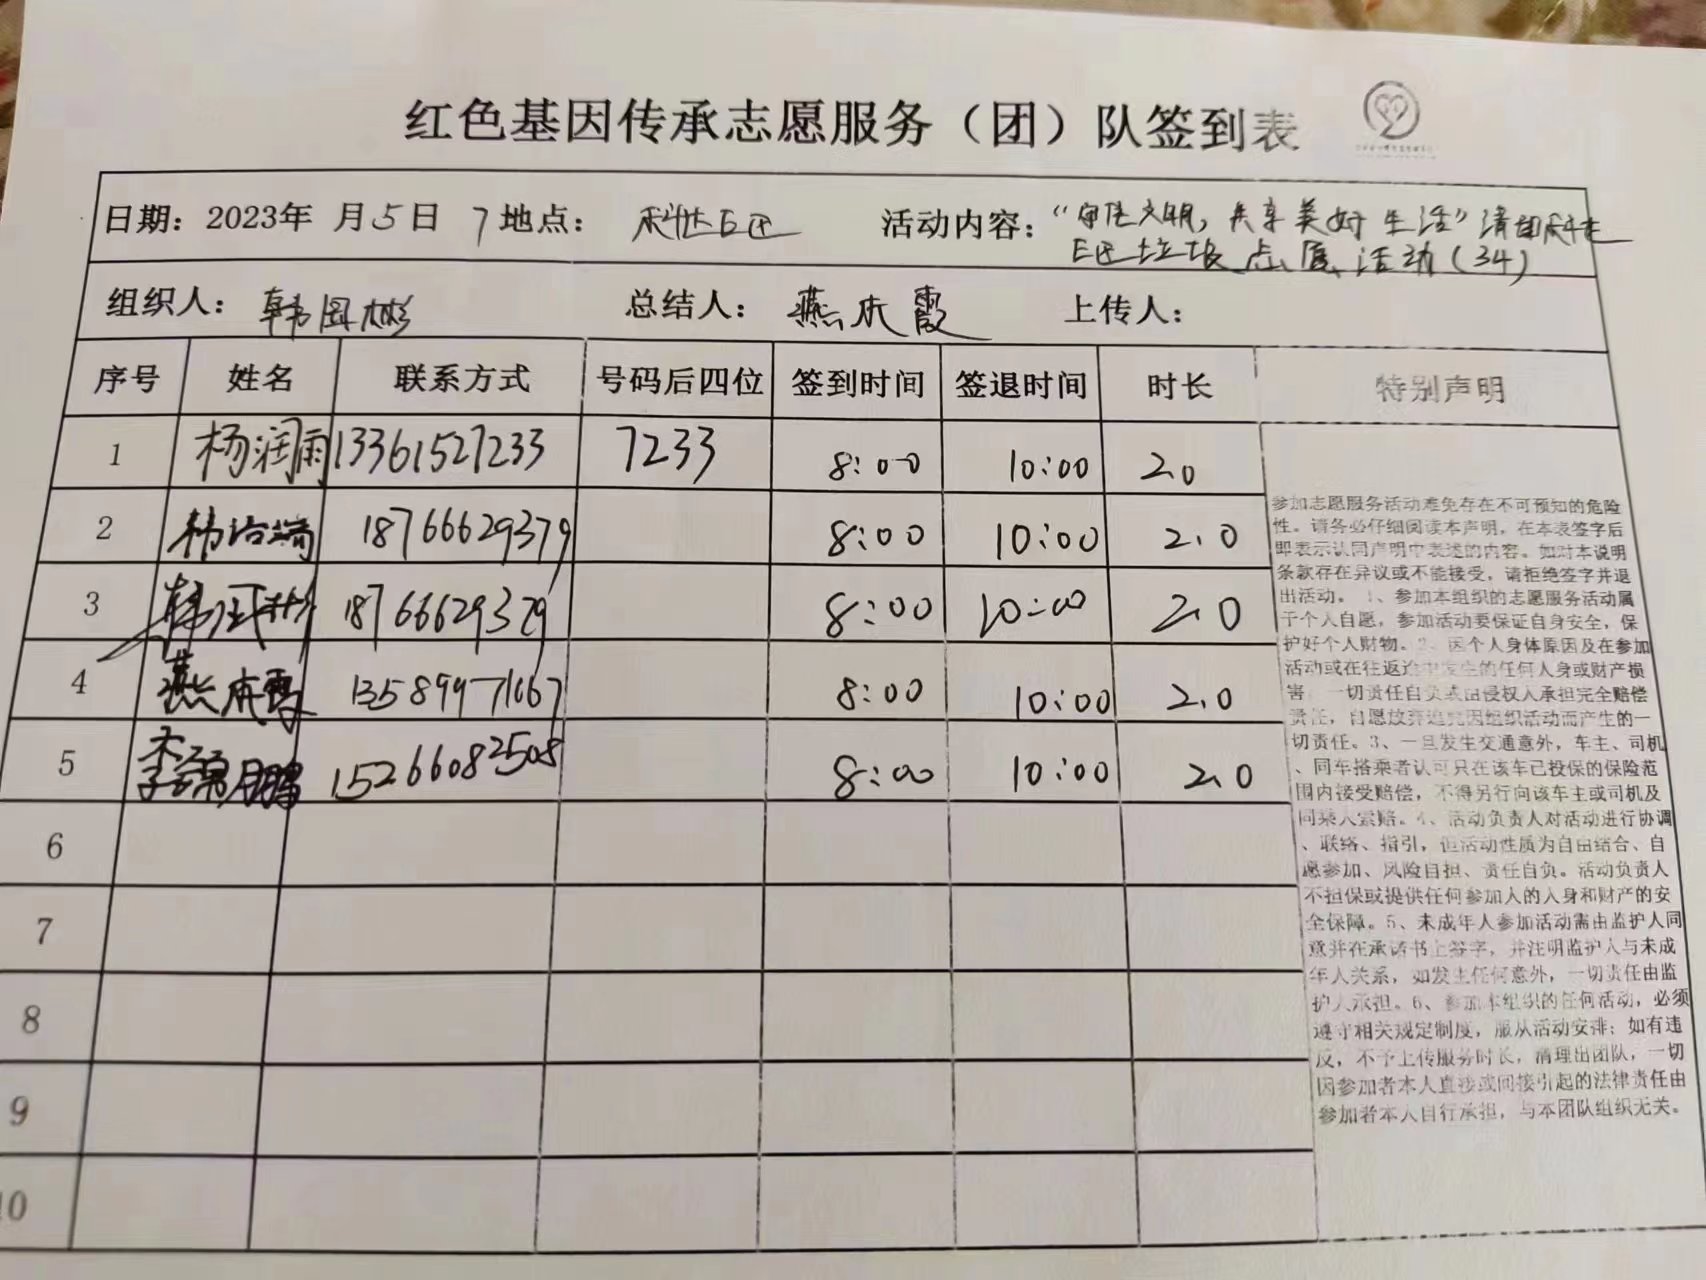 红色基因传承志愿服务（团）队签到表
日期：2023年 月5日 7 地点： 科社E区 活动内容：“守住文明，共享美好生活”清理科社
E区垃圾点位活动（34）
组织人：韩国彬 总结人：燕庆霞 上传人：
序号 姓名 联系方式 号码后四位 签到时间 签退时间 时长 特别声明
1 杨润雨 13361527233 7233 8:00 10:00 2.0
2 韩 18766629379 8:00 10:00 2.0
3 韩 18766629379 8:00 10:00 2.0
4 燕庆霞 13589971667 8:00 10:00 2.0
5 李 鹏 15266082508 8:00 10:00 2.0
6
7
8
9
10
参加志愿服务活动难免存在不可预知的危险
性。请务必仔细阅读本声明，在本表签字后
即表示认同声明中表述的内容。如对本说明
条款存在异议或不能接受，请拒绝签字并退
出活动。 1、参加本组织的志愿服务活动属
于个人自愿，参加活动要保证自身安全，保
护好个人财物。2、因个人身体原因及在参加
活动或在往返途中发生的任何人身或财产损
害，一切责任自负或由侵权人承担完全赔偿
责任，自愿放弃追究因组织活动而产生的一
切责任。3、一旦发生交通意外，车主、司机
、同车搭乘者认可只在该车已投保的保险范
围内接受赔偿，不得另行向该车主或司机及
同乘人索赔。4、活动负责人对活动进行协调
、联络、指引，但活动性质为自由结合、自
愿参加、风险自担、责任自负。活动负责人
不担保或提供任何参加人的人身和财产的安
全保障。5、未成年人参加活动需由监护人同
意并在承诺书上签字，并注明监护人与未成
年人关系，如发生任何意外，一切责任由监
护人承担。6、参加本组织的任何活动，必须
遵守相关规定制度，服从活动安排；如有违
反，不予上传服务时长，清理出团队，一切
因参加者本人直接或间接引起的法律责任由
参加者本人自行承担，与本团队组织无关。